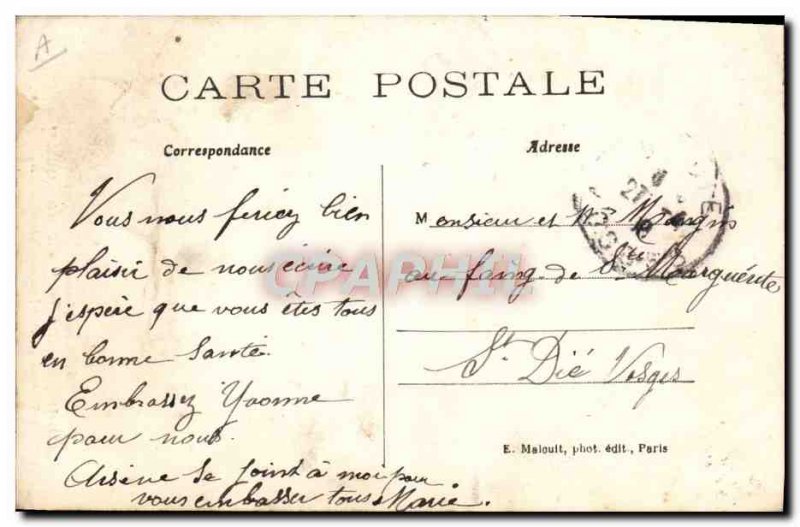 A
CARTE POSTALE
Correspondance
Vous nous feriez bien
plaisir de nous écrire
j'espère que vous êtes tous
en bonne santé.
Embrassez Yvonne
pour nous.
Arsène se joint à moi pour
vous embasser tous Marie.
Adresse
Monsieur et M Mangin
au faing de Ste Marguerite
St Dié Vosges
E. Malcuit, phot. édit., Paris
CPAPHIL